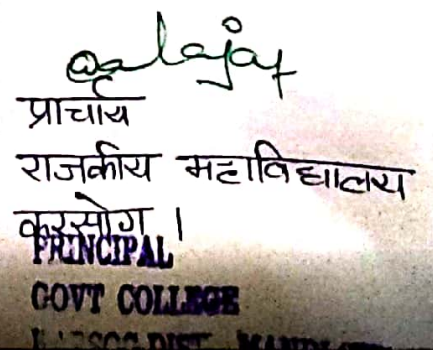 प्राचार्य
राजकीय महाविद्यालय
करसोग ।
PRINCIPAL
GOVT COLLEGE
DIST